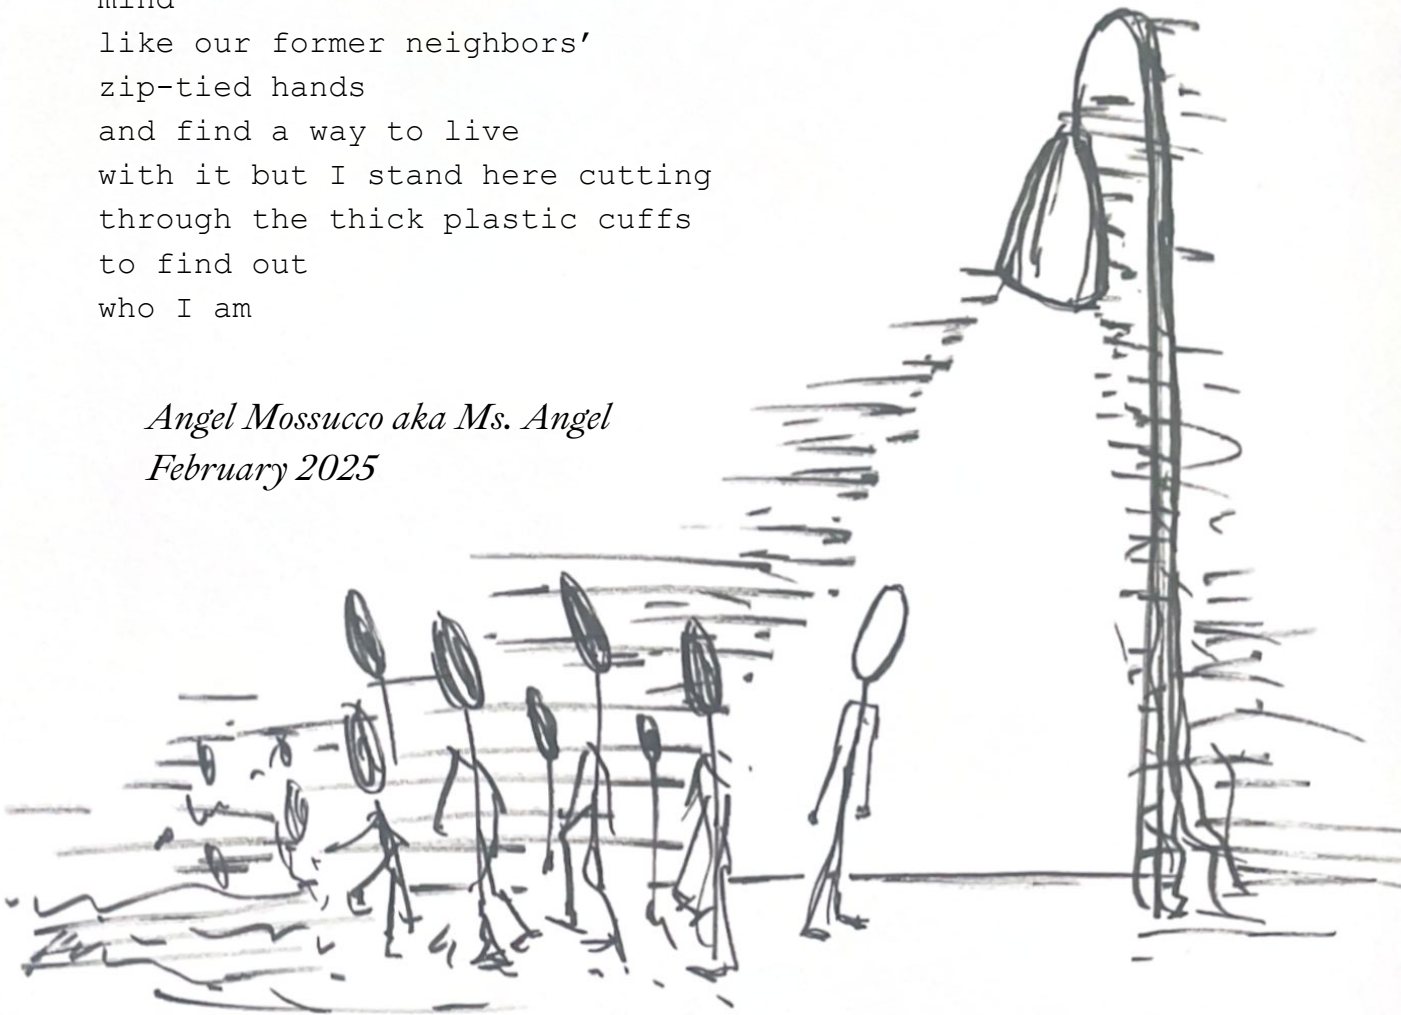 mind
like our former neighbors’
zip-tied hands
and find a way to live
with it but I stand here cutting
through the thick plastic cuffs
to find out
who I am
Angel Mossucco aka Ms. Angel
February 2025